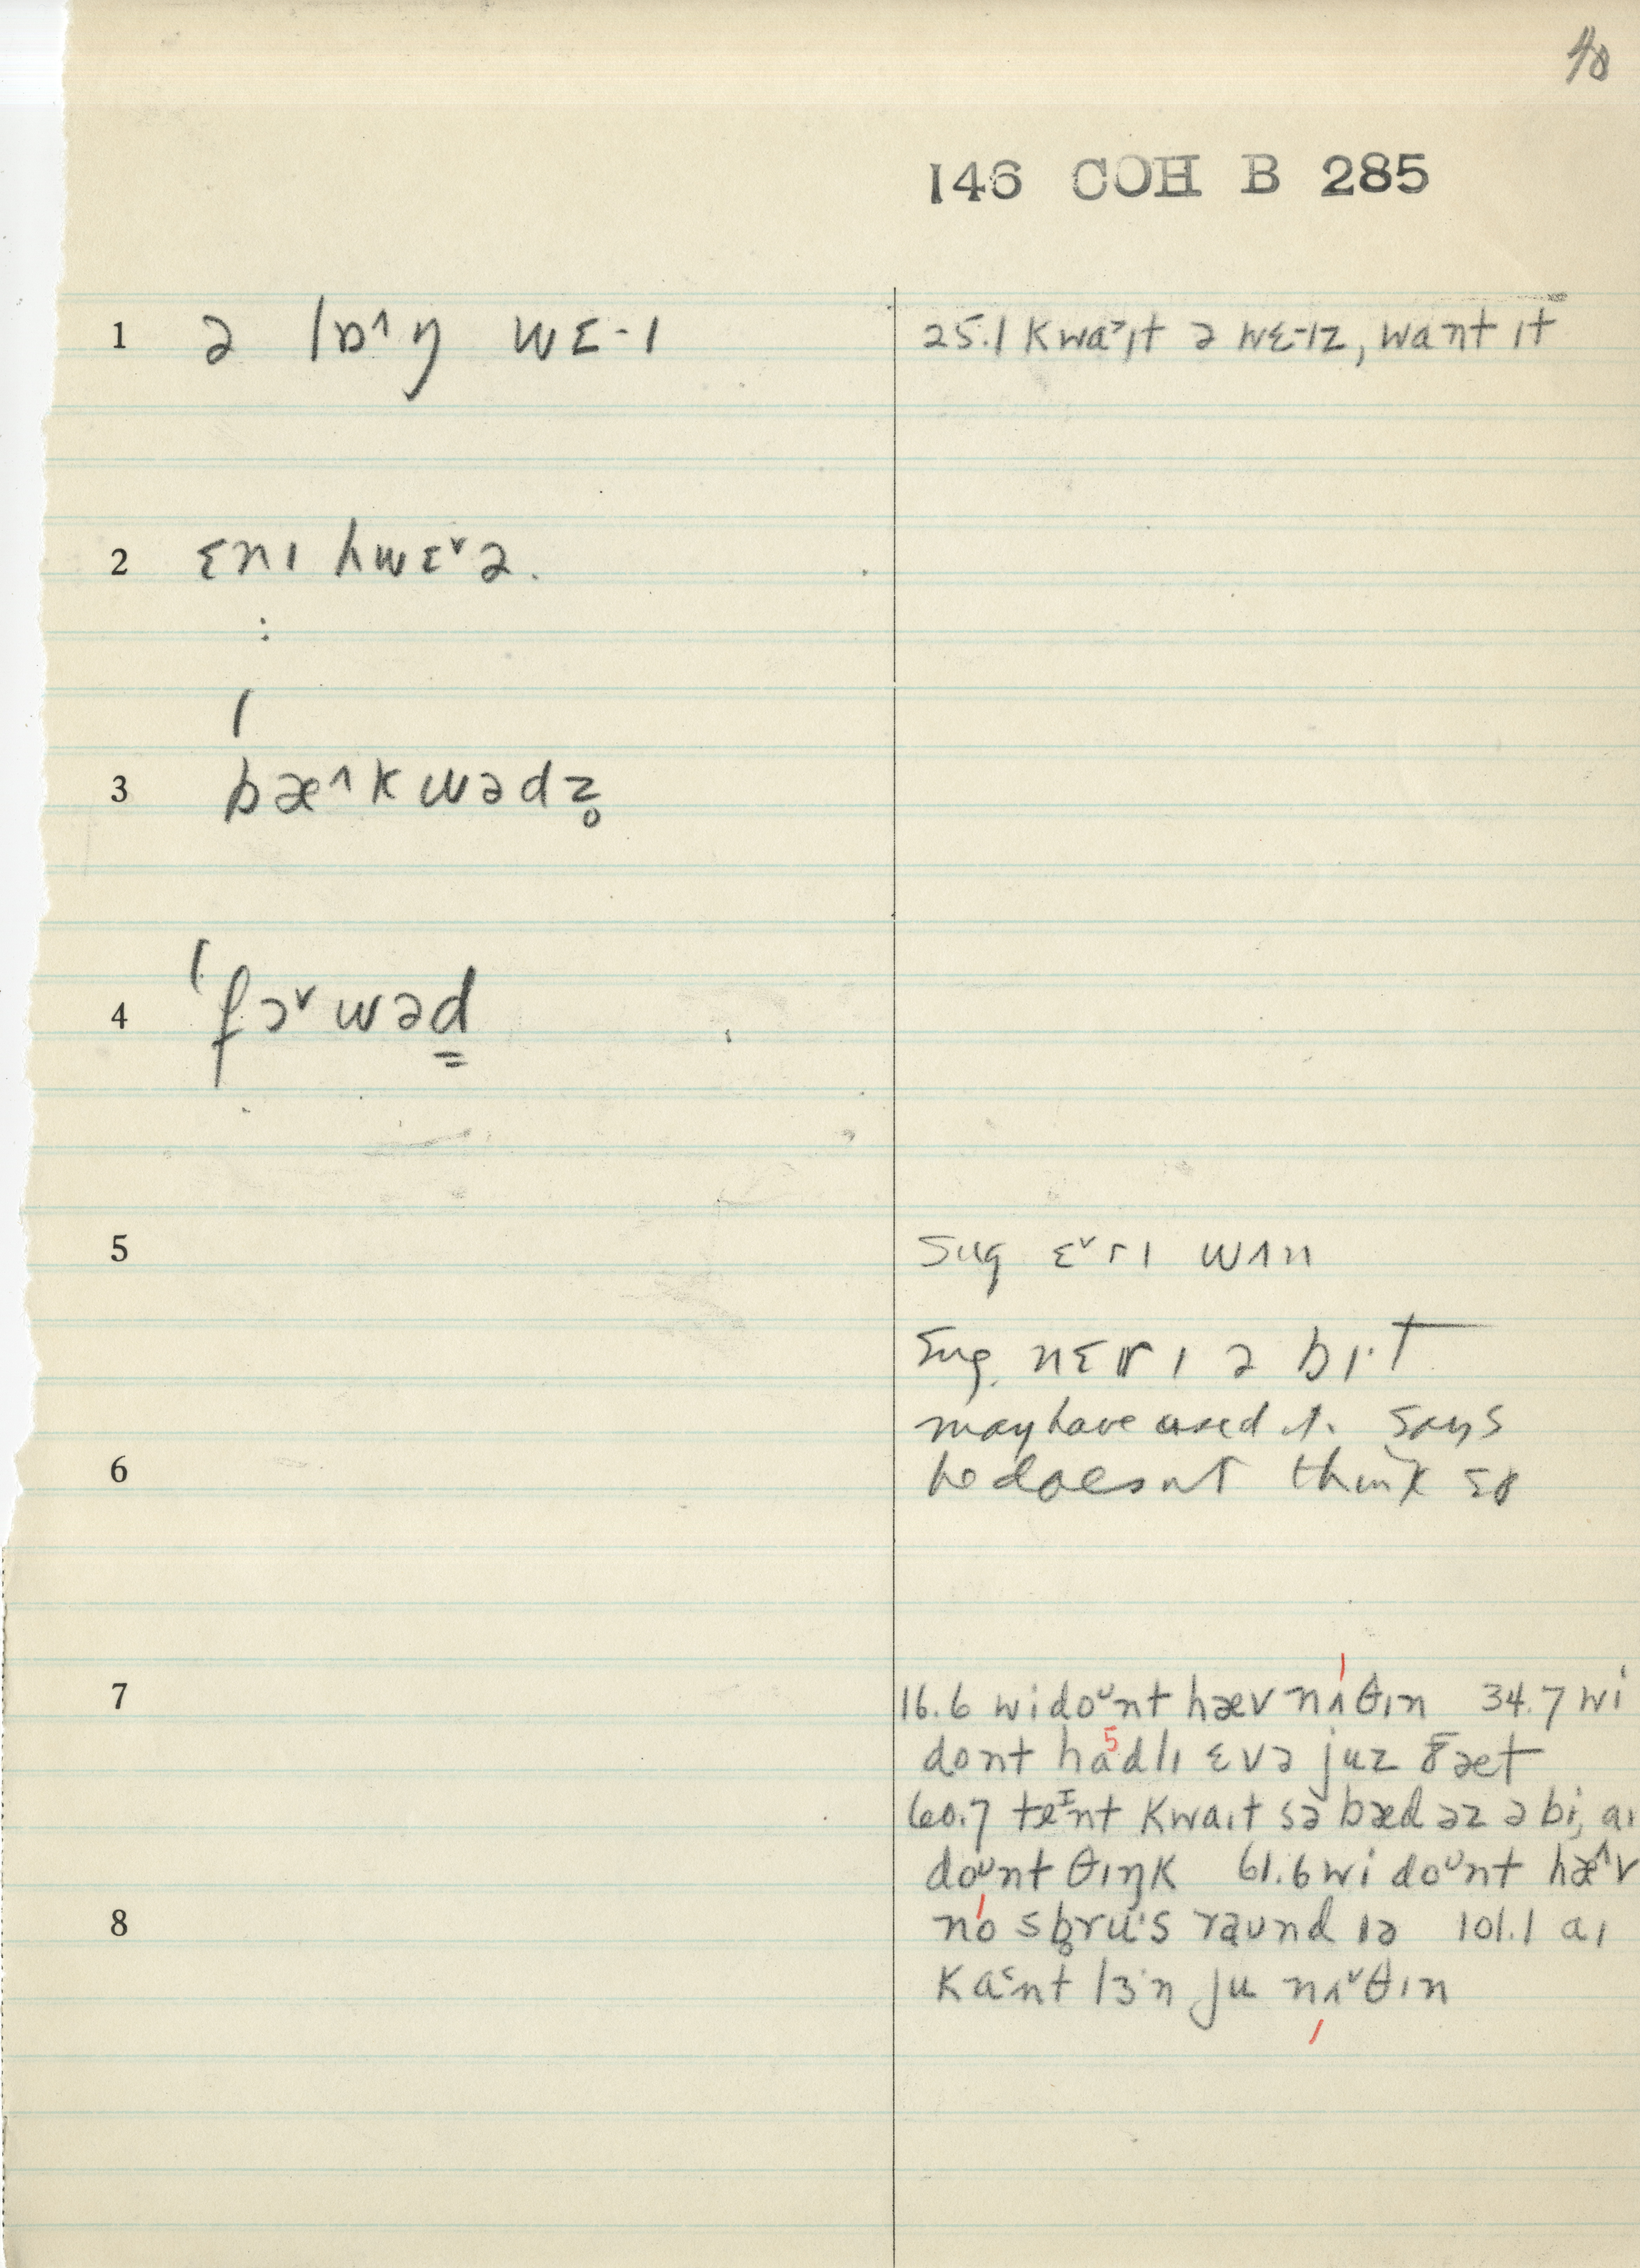 40
146 COH B 285
1 ə lɒ^ŋ wɛ-ɪ 25.1 kwaˀɪt ə wɛ-ɪz, want ɪt
2 ɛnɪ hwɛˇə.
3 ˈbæ^kwədz̥
4 ˈfɔˇwəd
5 Sug ɛˇrɪ wʌn
Sug. nɛrɪ ə bɪ·t
may have used it. Says
6 he doesn't think so
7 16.6 wi doᶷnt hæv nʌθɪn 34.7 wi
dont hadlɪ ɛvə juz ðæt
60.7 teᶦnt kwaɪt sə bæd əz ə bi, aɪ
doᶷnt θɪŋk 61.6 wi doᶷnt hæ^v
8 no sb̥ru·s raund ɪə 101.1 aɪ
ka˂nt lɜ·n ju nʌˇθɪn